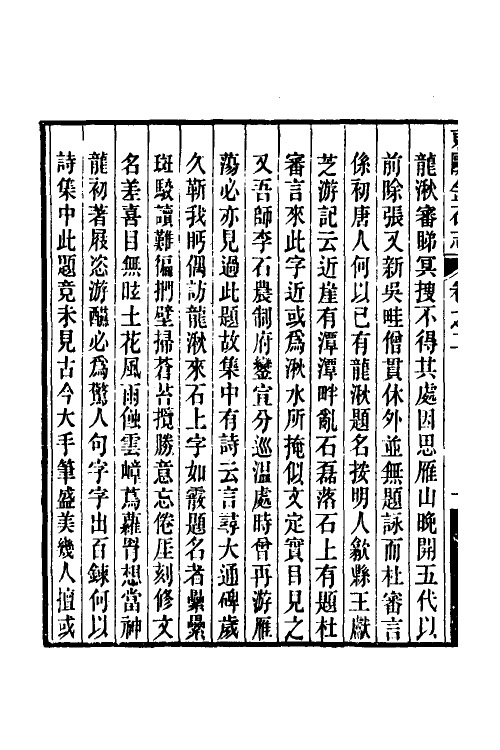 東甌金石志 卷之二
龍湫審睇冥搜不得其處因思雁山晚開五代以
前除張又新吳畦僧貫休外並無題詠而杜審言
係初唐人何以已有龍湫題名按明人歙縣王獻
芝游記云近崖有潭潭畔亂石磊落石上有題杜
審言來此字近或為湫水所掩似文定實目見之
又吾師李石農制府鑾宣分巡溫處時曾再游雁
蕩必亦見過此題故集中有詩云言尋大通碑歲
久靳我眄偶訪龍湫來石上字如霰題名者纍纍
斑駁讀難徧捫壁掃蒼苔攬勝意忘倦厓刻修文
名差喜目無眩土花風雨蝕雲嶂蔦蘿罥想當神
龍初著屐恣游醼必為驚人句字字出百鍊何以
詩集中此題竟未見古今大手筆盛美幾人擅或